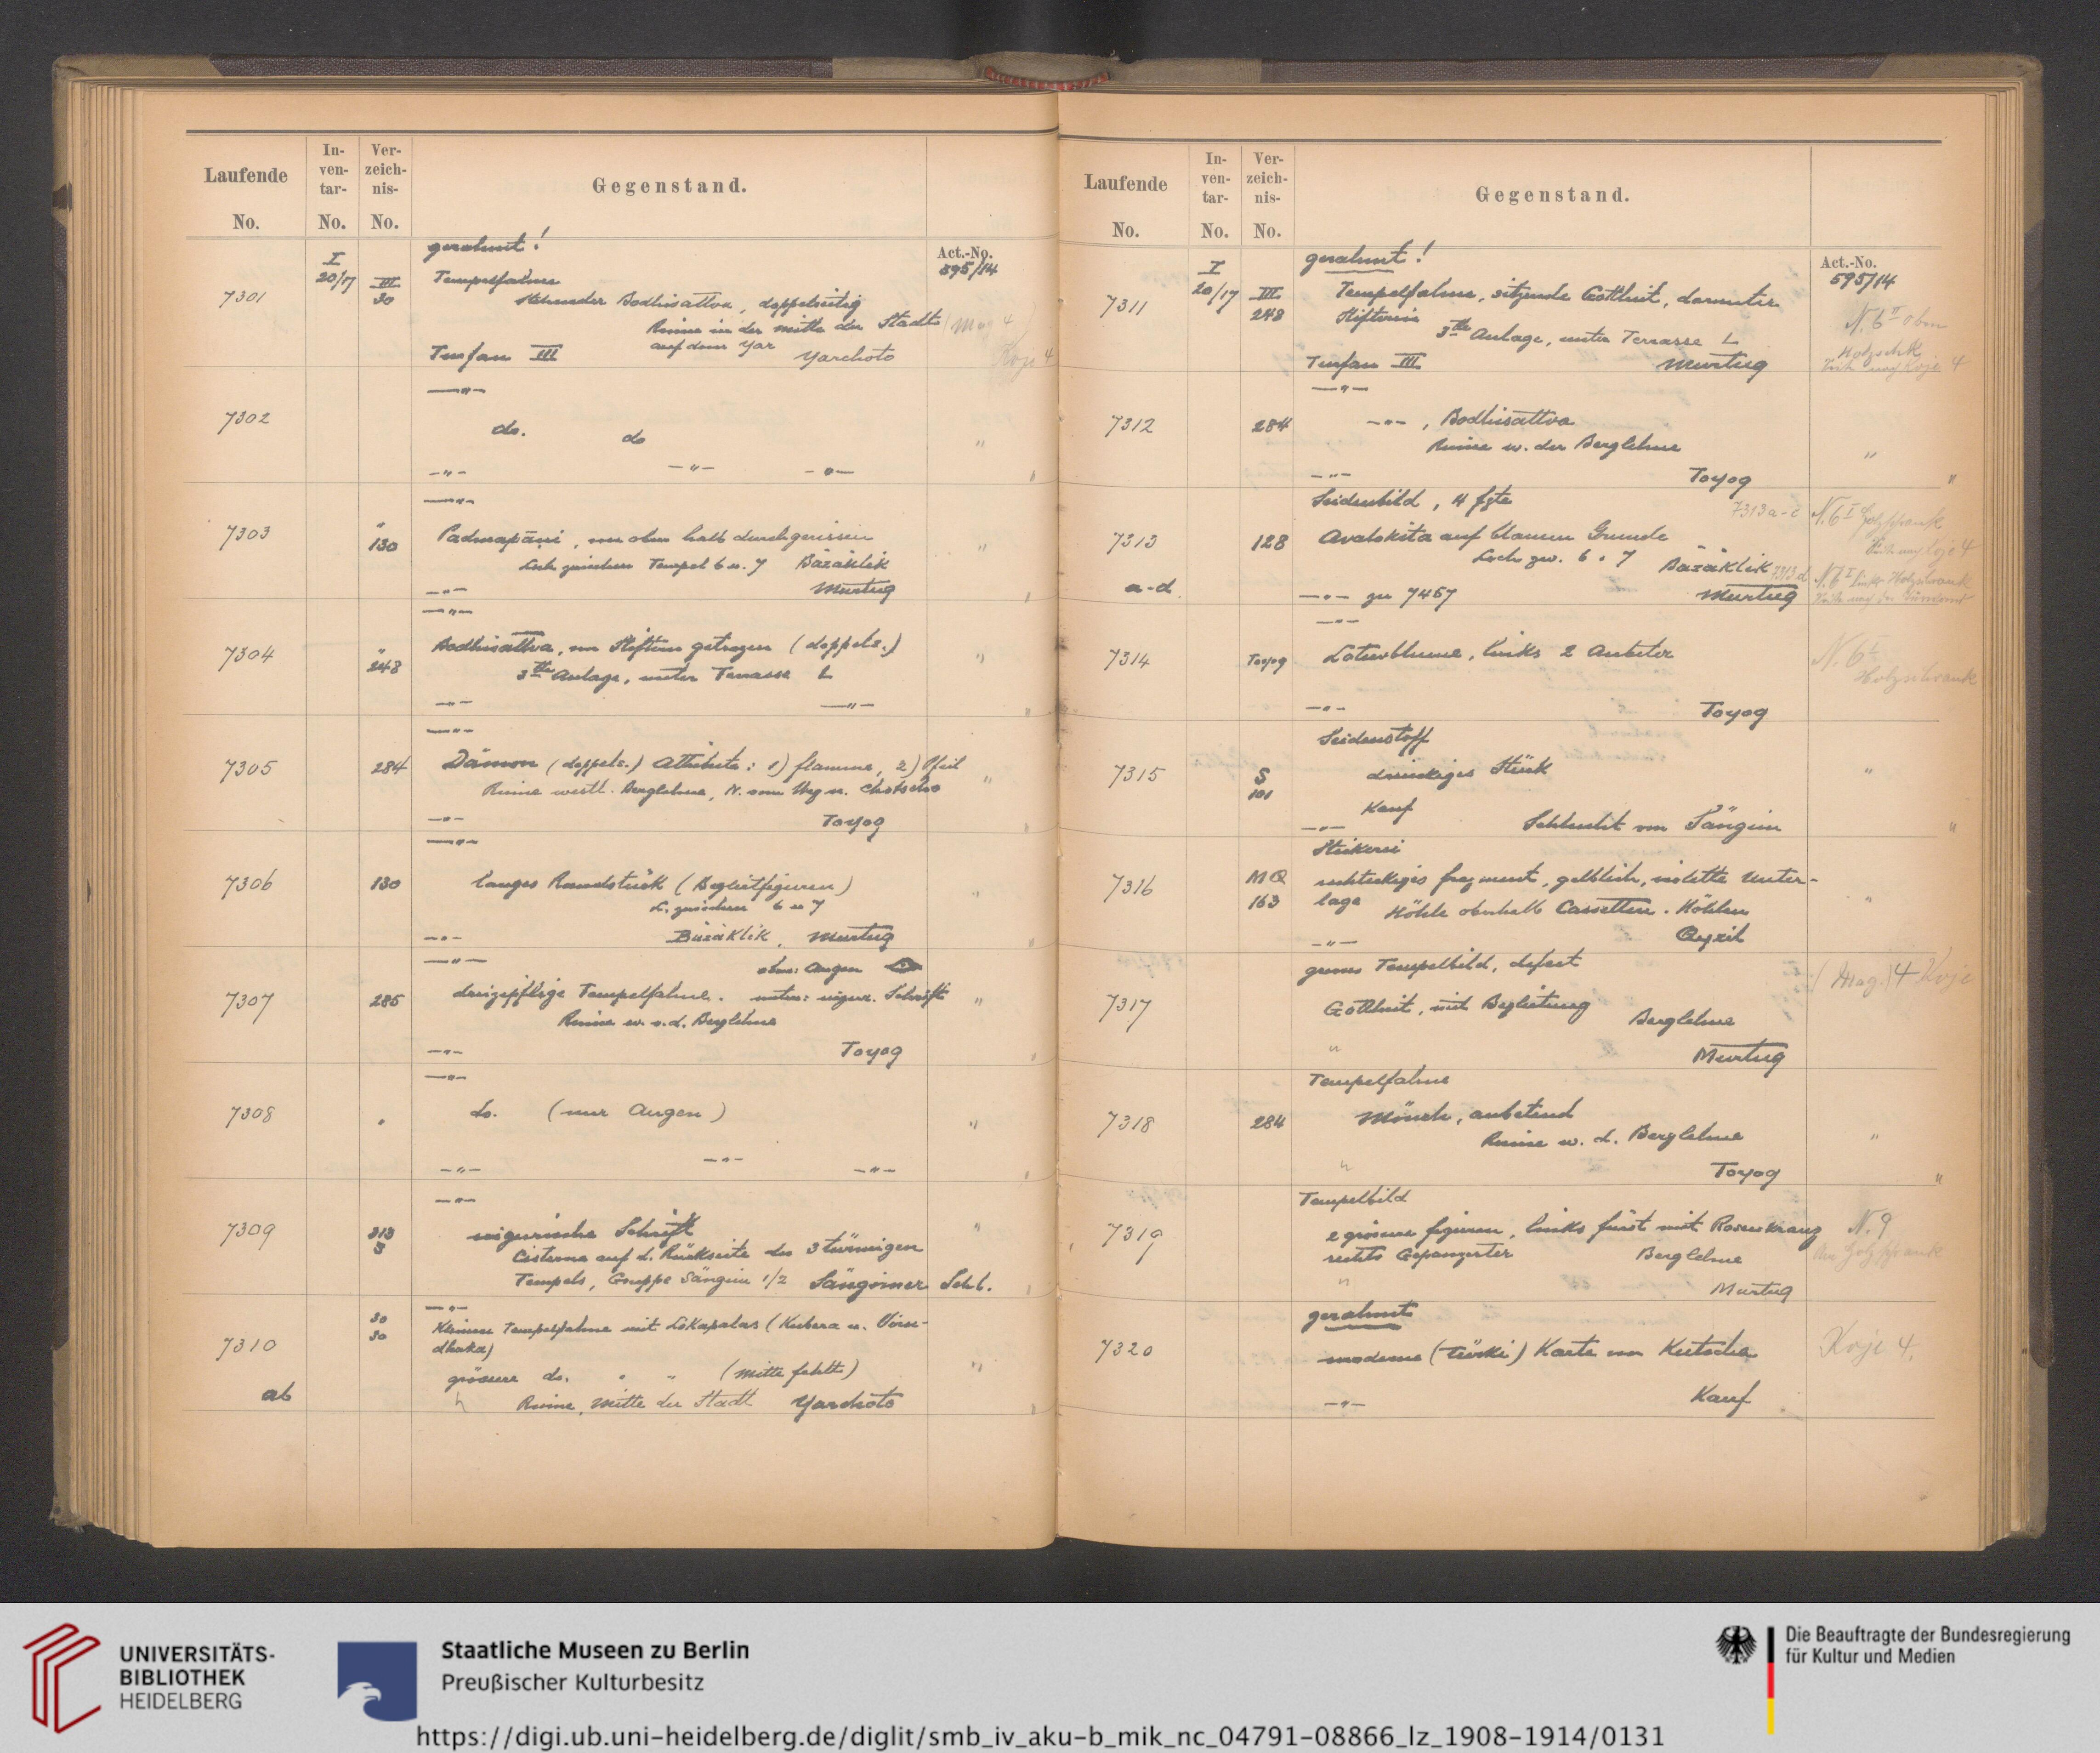 Laufende No.
In-ven-tar-No.
Ver-zeich-nis-No.
Gegenstand.
Act.-No.
gerahmt!
7301 I 20/17 III 30 Tempelfahne 595/14
stehender Bodhisattva, doppelseitig
Ruine in der Mitte der Stadt (Mag 4
auf dem Yar
Turfan III Yarchoto Koje 4
—"—
7302 do. do "
—"— —"— —"— "
—"—
7303 " 130 Padmapāni, von oben halb durchgerissen "
Loch zwischen Tempel 6 u. 7 Bäzäklik
—"— Murtuq "
—"—
7304 " 248 Bodhisattva, von Stiftern getragen (doppels.) "
3te Anlage, unter Terrasse L
—"— —"— "
—"—
7305 284 Dämon (doppels.) Attribute: 1) Flamme, 2) Pfeil "
Ruine westl. Berglehne, N. vom Weg n. Chotscho
—"— Toyoq "
—"—
7306 130 langes Randstück (Begleitfiguren) "
L. zwischen 6 u 7
—"— Bäzäklik, Murtuq "
—"— oben: Augen
7307 285 dreizipflige Tempelfahne. unten: uigur. Schrift "
Ruine w. v. d. Berglehne
—"— Toyoq "
—"—
7308 " do. (nur Augen) "
—"— —"— —"— "
—"—
7309 313 S uigurische Schrift "
Cisterne auf d. Rückseite des 3türmigen
Tempels, Gruppe Sängim 1/2 Sängimer Schl. "
—"—
7310 30 30 Kleinere Tempelfahne mit Lokapalas (Kubera u. Viru-
dhaka)
grössere do. " " (Mitte fehlt) "
ab " Ruine, Mitte der Stadt Yarchoto "
Laufende No.
In-ven-tar-No.
Ver-zeich-nis-No.
Gegenstand.
Act.-No.
gerahmt!
7311 I 20/17 III 248 Tempelfahne, sitzende Gottheit, darunter 595/14
Stifterin N. 6 II oben
3te Anlage, unter Terrasse L Holzschk
Turfan III Murtuq Koje 4
—"—
7312 284 —"—, Bodhisattva
Ruine w. der Berglehne "
—"— Toyoq "
Seidenbild, 4 fgte 7313a-c N. 6 I Holzschrank
7313 128 Avalokita auf blauem Grunde Koje 4
Loch zw. 6 . 7 Bäzäklik 7313 d N. 6 I Holzschrank
a-d —"— zu 7457 Murtuq
—"—
7314 Toyoq Lotusblume, links 2 Anbeter N. 6 I
Holzschrank
—"— Toyoq
Seidenstoff
7315 S 101 dreieckiges Stück "
Kauf
—"— Schlucht von Sängim "
Stickerei
7316 MQ 163 rechteckiges Fragment, gelblich, violette Unter-
lage Höhle oberhalb Cassetten. Höhlen "
—"— Qyzil
grosses Tempelbild, defect (Mag.) 4 Koje
7317 Gottheit, mit Begleitung
Berglehne
" Murtuq
Tempelfahne
7318 284 Mönch, anbetend
Ruine w. d. Berglehne "
" Toyoq "
Tempelbild
7319 2 grössere Figuren, links Fürst mit Rosenkranz N. 9
rechts Gepanzerter Berglehne Holzschrank
" Murtuq
gerahmt
7320 moderne (türki) Karte von Kutscha Koje 4.
—"— Kauf
UNIVERSITÄTS-
BIBLIOTHEK
HEIDELBERG
Staatliche Museen zu Berlin
Preußischer Kulturbesitz
Die Beauftragte der Bundesregierung
für Kultur und Medien
https://digi.ub.uni-heidelberg.de/diglit/smb_iv_aku-b_mik_nc_04791-08866_lz_1908-1914/0131